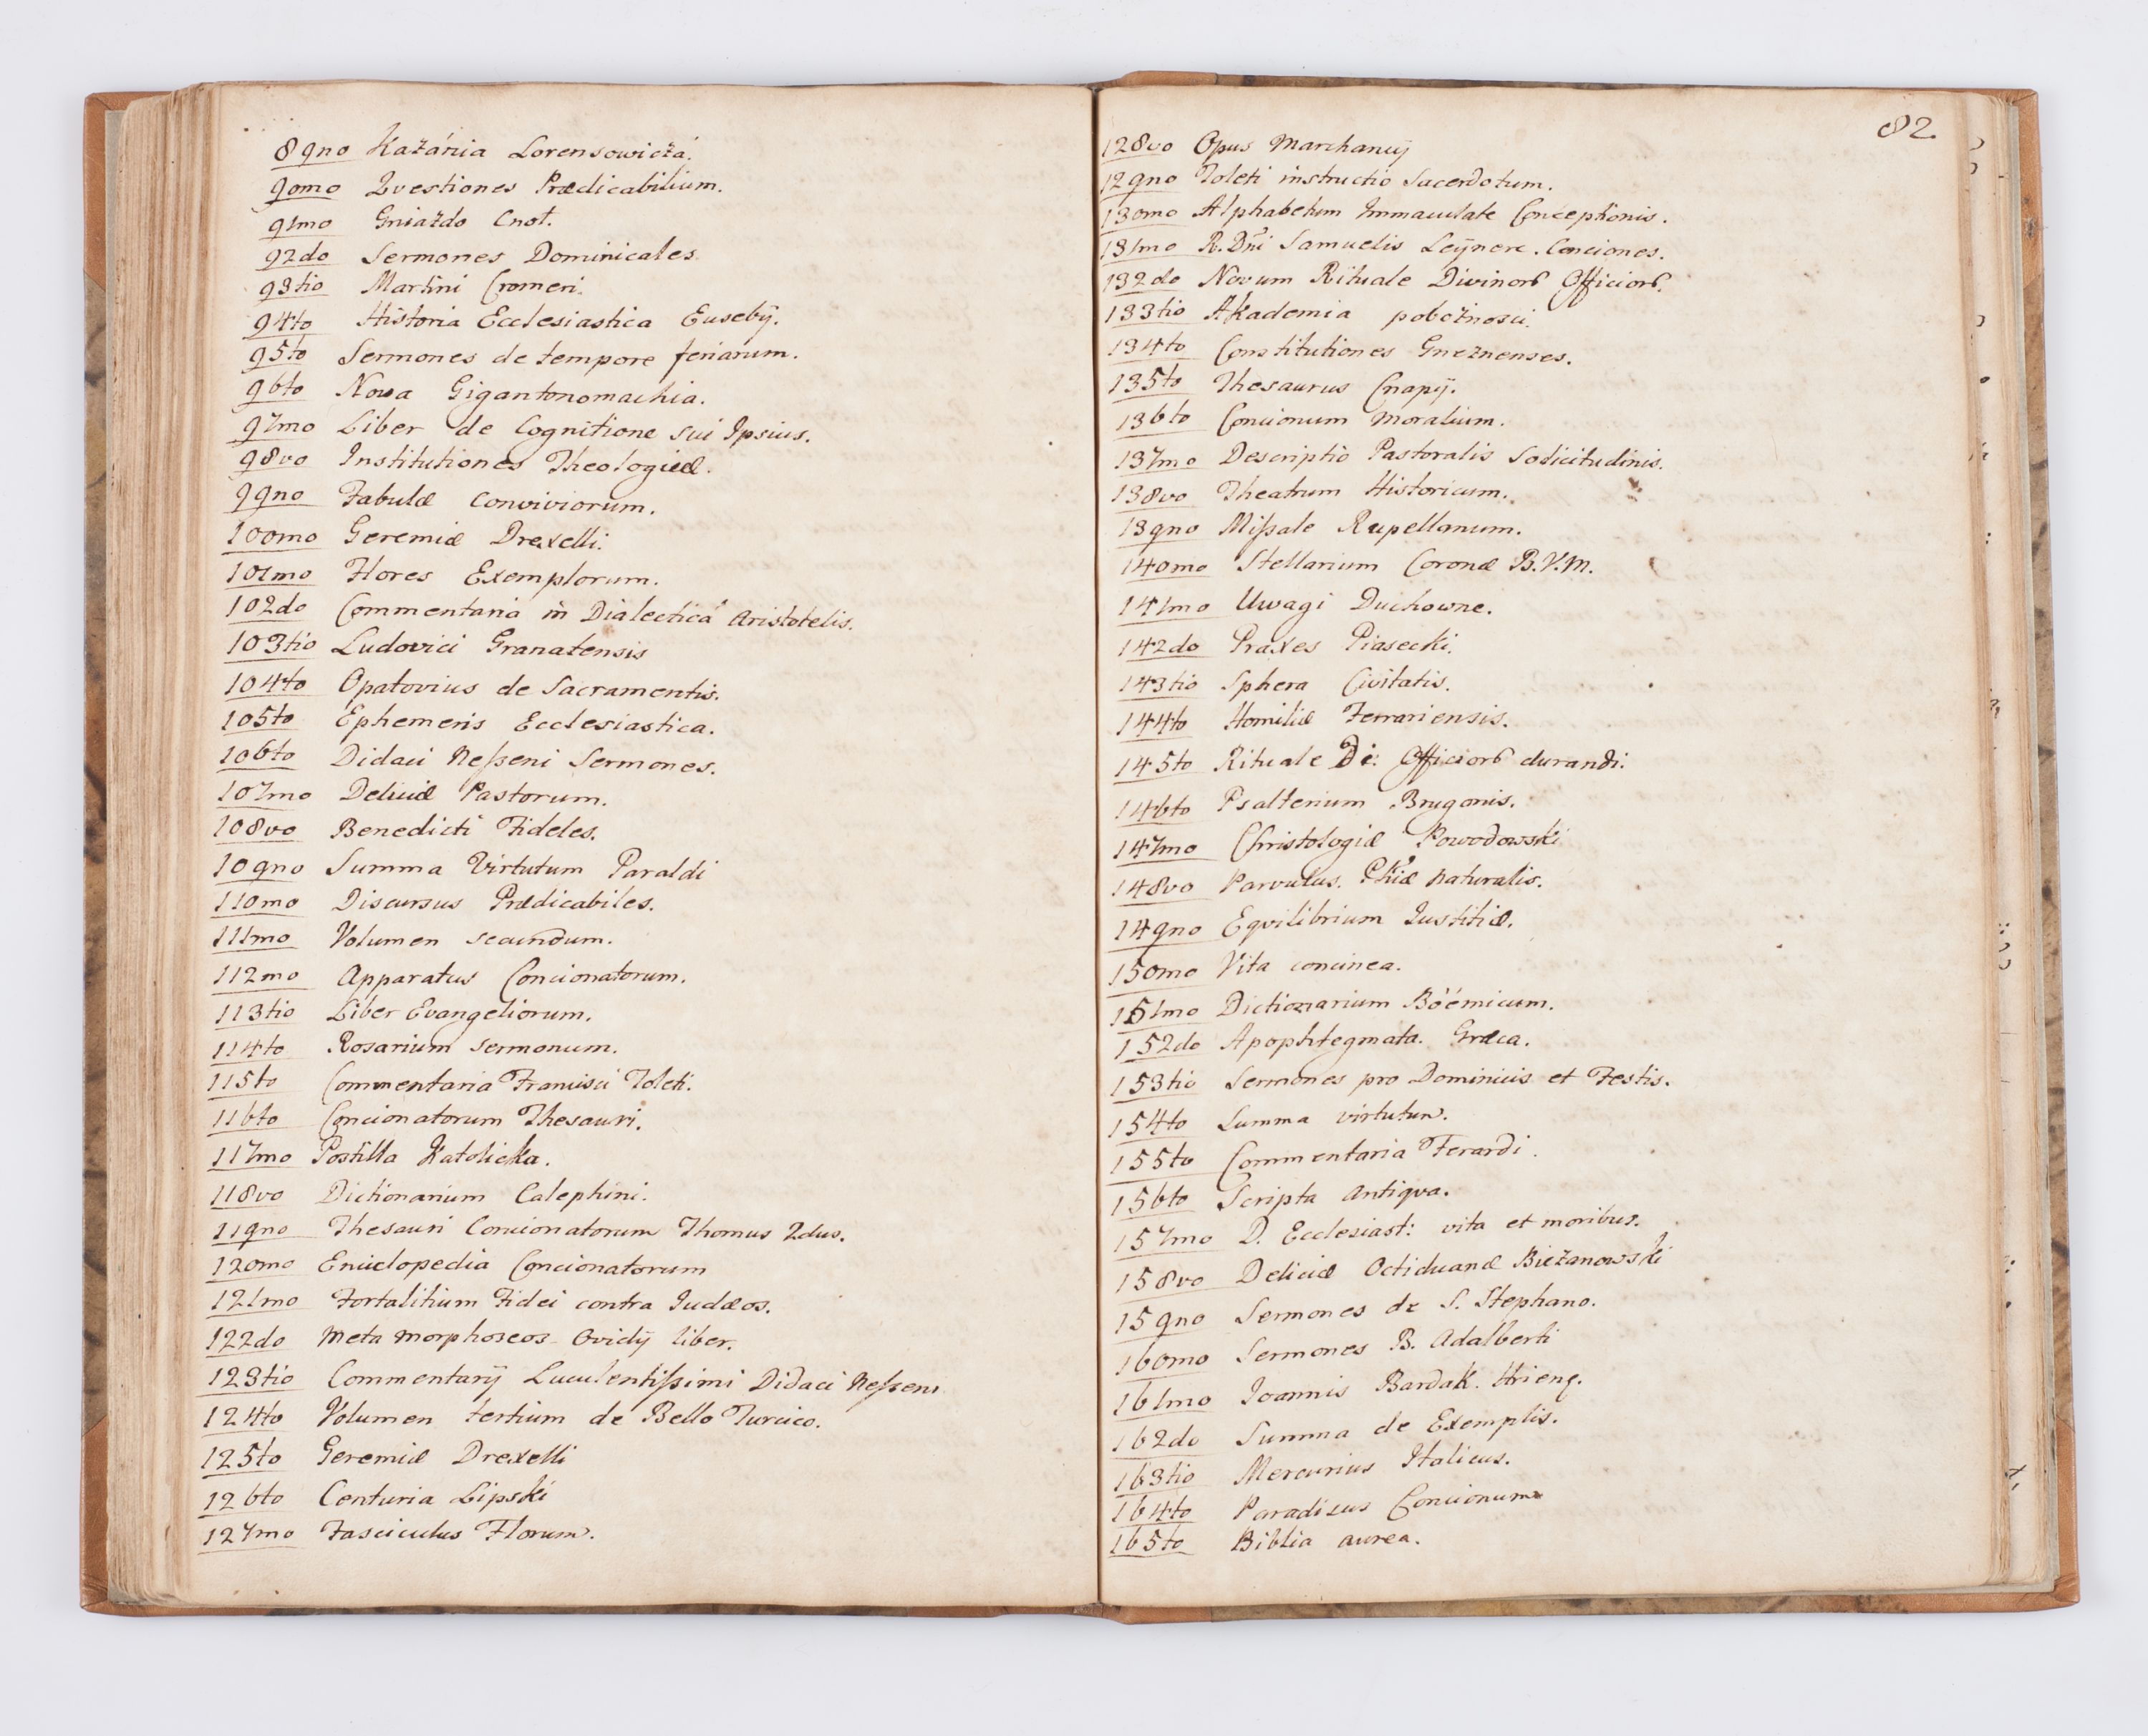 89no Kazánia Lorensowicza.
90mo Qvestiones Prædicabilium.
91mo Gniazdo Cnot.
92do Sermones Dominicales
93tio Martini Cromeri.
94to Historia Ecclesiastica Eusebÿ.
95to Sermones de tempore feriarum.
96to Nowa Gigantonomachia.
97mo Liber de Cognitione sui Ipsius.
98vo Institutiones Theologicæ.
99no Fabulæ Conviviorum.
100mo Geremiæ Drexelli.
101mo Flores Exemplorum.
102do Commentaria in Dialecticā Aristotelis.
103tio Ludovici Granatensis
104to Opatovius de Sacramentis.
105to Ephemeris Ecclesiastica.
106to Didaci Neſseni Sermones.
107mo Deliciæ Pastorum.
108vo Benedicti Fideles.
109no Summa Virtutum Paraldi
110mo Discursus Prædicabiles.
111mo Volumen secundum.
112mo Apparatus Concionatorum.
113tio Liber Evangeliorum.
114to Rosarium sermonum.
115to Commentaria Francisci Toleti.
116to Concionatorum Thesauri.
117mo Postilla Katolicka.
118vo Dictionarium Calephini.
119no Thesauri Concionatorum Thomus 2dus.
120mo Enciclopedia Concionatorum
121mo Fortalitium Fidei contra Iudæos.
122do Metamorphoseos Ovidÿ liber.
123tio Commentarÿ Luculentiſsimi Didaci Neſseni
124to Volumen tertium de Bello Turcico.
125to Geremiæ Drexelli
126to Centuria Lipski
127mo Fasciculus Florum.
82.
128vo Opus Marchancÿ
129no Toleti instructio Sacerdotum.
130mo Alphabetum Immaculate Conceptionis.
131mo R. Dn̄i Samuelis Leÿnerc. Conciones.
132do Novum Rituale Divinorb Officiorb.
133tio Akademia poboznosci.
134to Constitutiones Gneznenses.
135to Thesaurus Cnapÿ.
136to Concionum Moralium.
137mo Descriptio Pastoralis Solicitudinis.
138vo Theatrum Historicum.
139no Miſsale Rupellanum.
140mo Stellarium Coronæ B.V.M.
141mo Uwagi Duchowne.
142do Praxes Piasecki.
143tio Sphera Civitatis.
144to Homiliæ Ferrariensis.
145to Rituale Di: Officiorb durandi.
146to Psalterium Brugonis.
147mo Christologiæ Powodowski
148vo Parvulus. Phiæ Naturalis.
149no Eqvilibrium Iustitiæ.
150mo Vita concinea.
151mo Dictionarium Böémicum.
152do Apophtegmata. Græca.
153tio Sermones pro Dominicis et Festis.
154to Summa virtutum.
155to Commentaria Ferardi.
156to Scripta Antiqva.
157mo D. Ecclesiast: vita et moribus.
158vo Deliciæ Octiduanæ Biezanowski
159no Sermones de S. Stephano.
160mo Sermones B. Adalberti
161mo Ioannis Bardak. Hrieng.
162do Summa de Exemplis.
163tio Mercurius Italicus.
164to Paradisus Concionum
165to Biblia aurea.